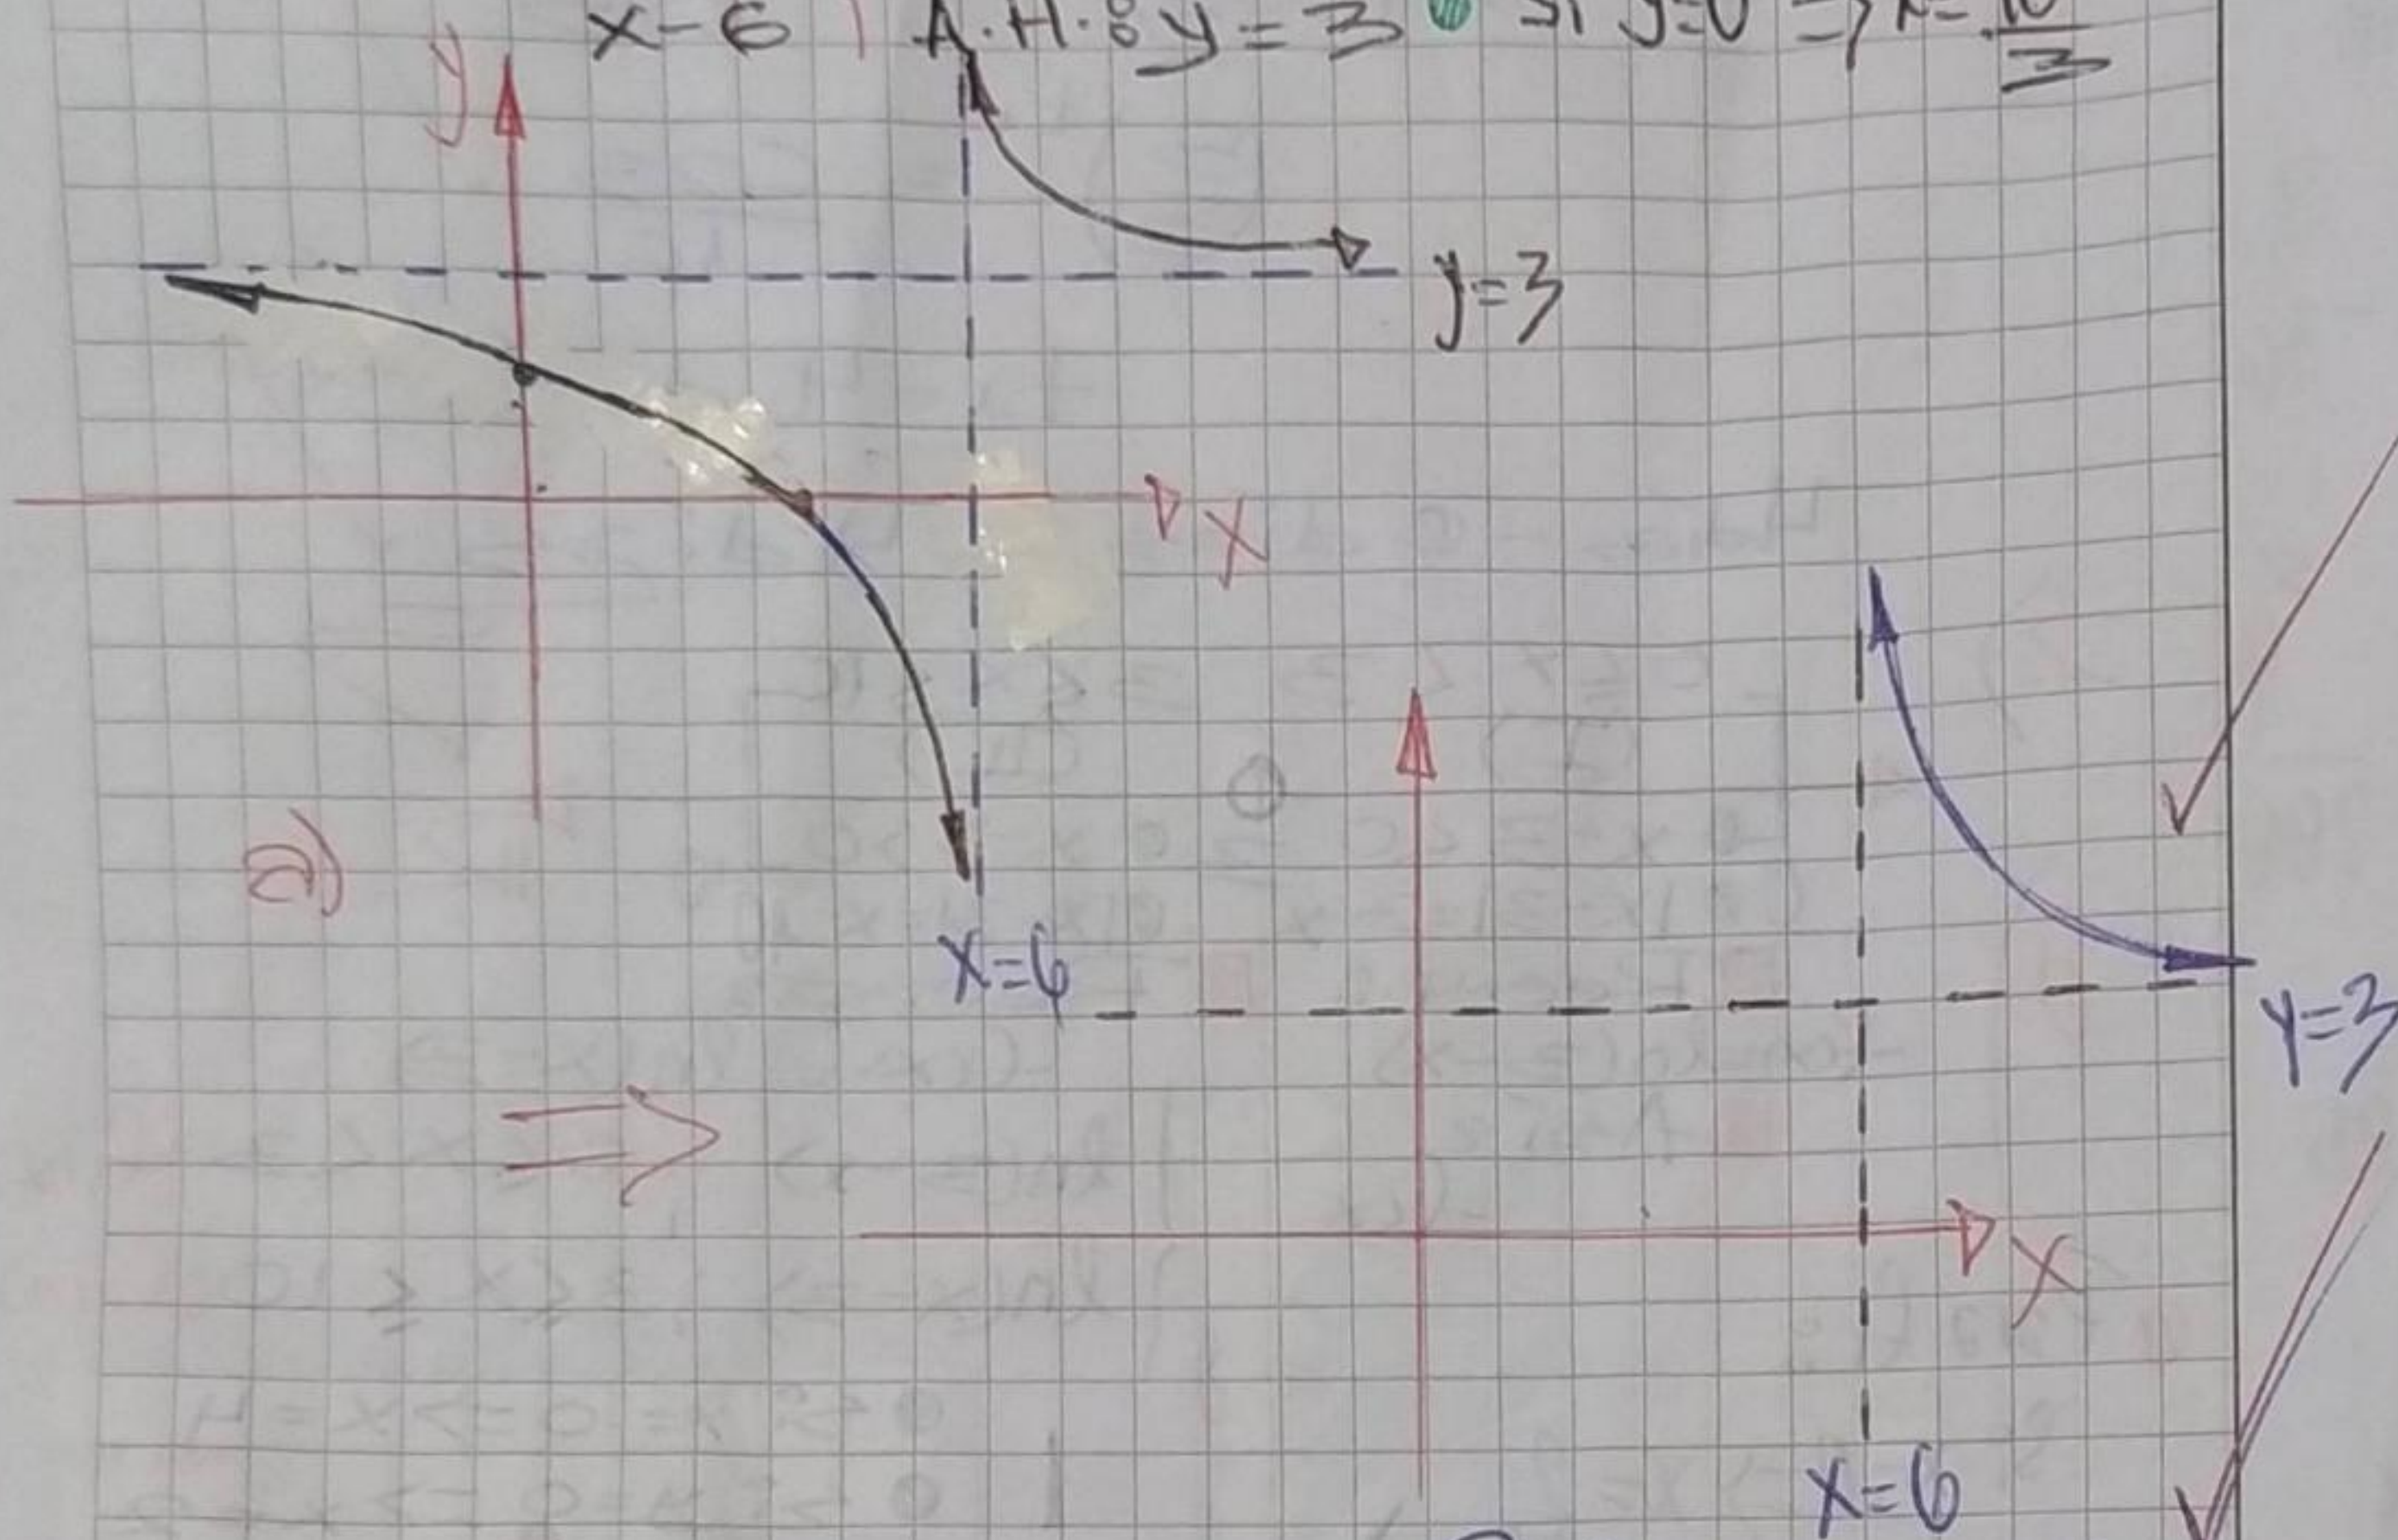 x-6 | A.H.: y = 3 Si y=0 => x= 10/3
y
y=3
x
a)
x=6
y=3
x
x=6